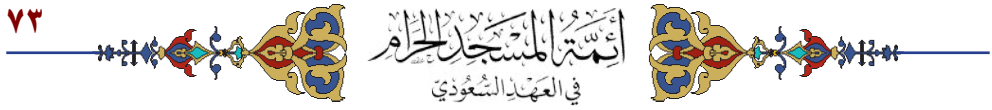 ٧٣
أَئِمَّةُ المَسْجِدِ الحَرَامِ
في العَهْدِ السُّعُوْدِيّ